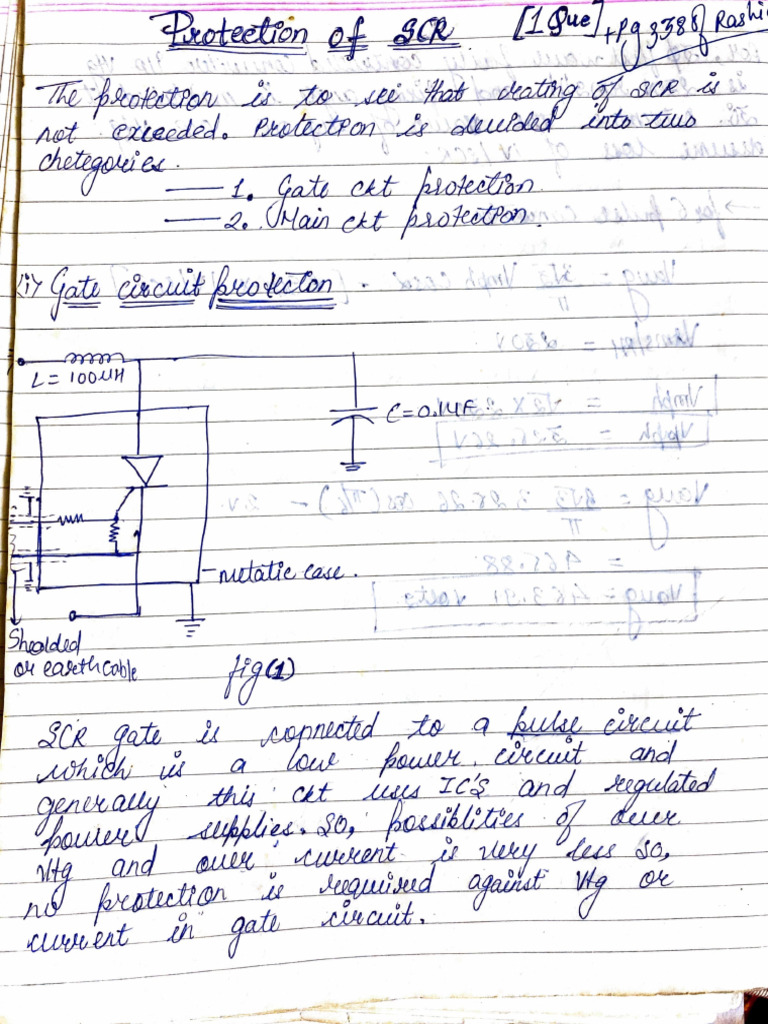 Protection of SCR [1 Que] + Pg 338 of Rashi
The protection is to see that rating of SCR is
not exceeded. Protection is devided into two
chetegories.
1. Gate ckt protection
2. Main ckt protection.
(i) Gate circuit protection
L = 100 μH
C = 0.1 μF
metatic case.
Shealded
or earth cable
fig (1)
SCR gate is connected to a pulse circuit
which is a low power circuit and
generally this ckt uses IC'S and regulated
power supplies. SO, possiblities of over
vtg and over current is very less so,
no protection is required against vtg or
current in gate circuit.